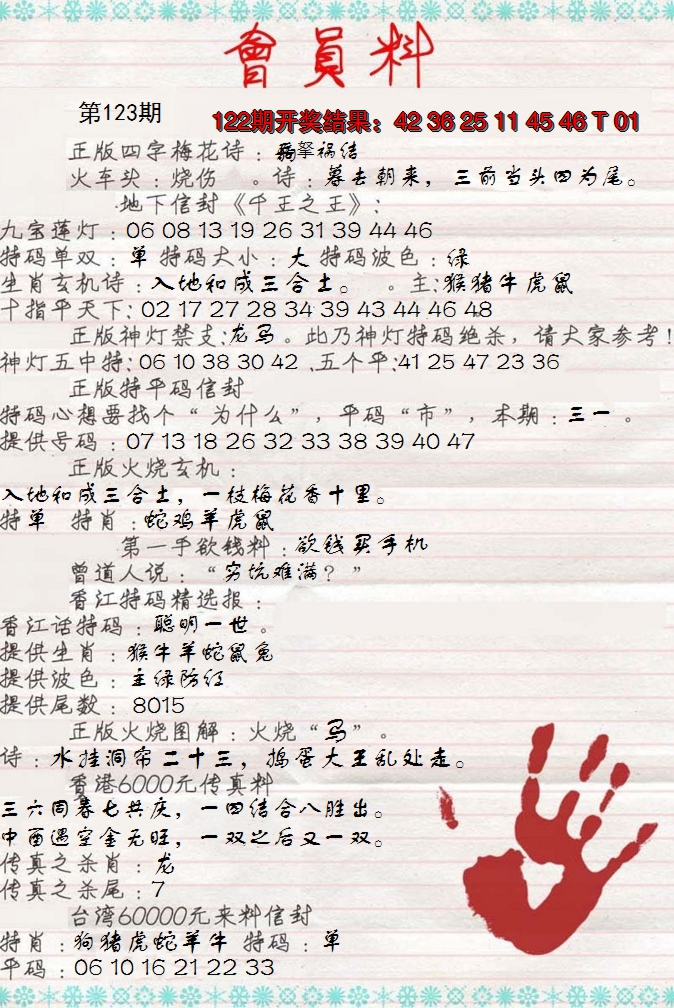 會員料
第123期
122期开奖结果：42 36 25 11 45 46 T 01
正版四字梅花诗：祸结
火车头：烧伤 。诗：暮去朝来，三前当头四为尾。
地下信封《千王之王》：
九宝莲灯：06 08 13 19 26 31 39 44 46
特码单双：单 特码大小：大 特码波色：绿
生肖玄机诗：入地和成三合土。 。主:猴猪牛虎鼠
十指平天下: 02 17 27 28 34 39 43 44 46 48
正版神灯禁支:龙马。此乃神灯特码绝杀，请大家参考!
神灯五中特:06 10 38 30 42 .五个平:41 25 47 23 36
正版特平码信封
特码心想要找个“为什么”，平码“市”，本期：三一 。
提供号码：07 13 18 26 32 33 38 39 40 47
正版火烧玄机：
入地和成三合土，一枝梅花香十里。
特单 特肖：蛇鸡羊虎鼠
第一手欲钱料：欲钱买手机
曾道人说：“穷坑难满？”
香江特码精选报：
香江话特码：聪明一世。
提供生肖：猴牛羊蛇鼠兔
提供波色：主绿防红
提供尾数：8015
正版火烧图解：火烧“马”。
诗：水挂洞帘二十三，捣蛋大王乱处走。
香港6000元传真料
三六同春七共庆，一四结合八胜出。
中西遇空金无旺，一双之后又一双。
传真之杀肖：龙
传真之杀尾：7
台湾60000元来料信封
特肖：狗猪虎蛇羊牛 特码：单
平码：06 10 16 21 22 33